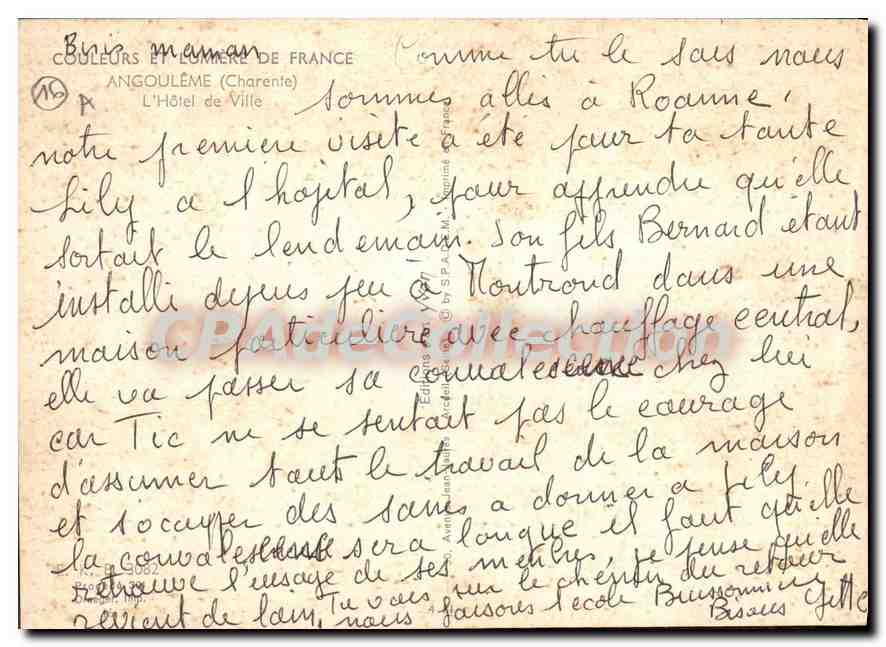 Bns maman
COULEURS ET LUMIÈRE DE FRANCE
ANGOULÊME (Charente)
L'Hôtel de Ville
16
A
Comme tu le sais nous
sommes allés à Roanne,
notre première visite a été pour ta tante
Lily a l'hopital, pour apprendre qu'elle
sortait le lendemain. Son fils Bernard étant
installé depuis peu à Montrond dans une
maison particulière avec chauffage central,
elle va passer sa convalescence chez lui
car Tic ne se sentait pas le courage
d'assumer tout le travail de la maison
et s'occuper des soins a donner a Lily
la convalescence sera longue il faut qu'elle
retrouve l'usage de ses membres, je pense qu'elle
revient de loin, Tu vois sur le chemin du retour
nous faisons l'école Buissonnière
Bisous Gette
Editions d'art Yvon
Arcueil (Seine) © by S.P.A.D.E.M. Imprimé en France
Avenue Jean-Jaurès
3082
Draeger, imp.
CPAdeCollection